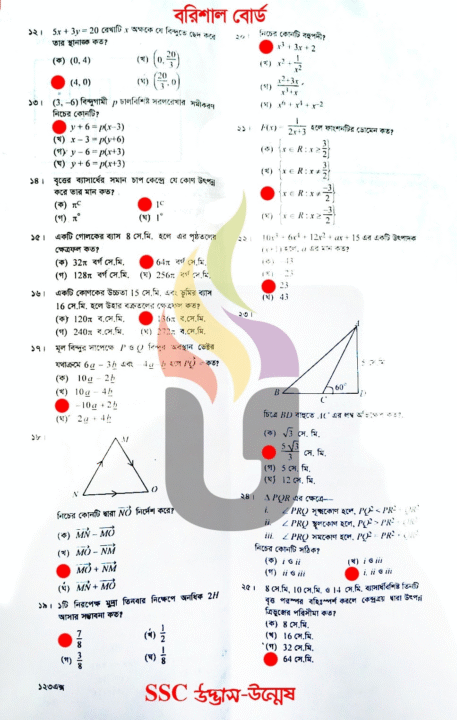 বরিশাল বোর্ড
১২। 5x + 3y = 20 রেখাটি x অক্ষকে যে বিন্দুতে ছেদ করে
তার স্থানাঙ্ক কত?
(ক) (0, 4)
(খ) (0, 20/3)
(4, 0)
(ঘ) (20/3, 0)
১৩। (3, -6) বিন্দুগামী p ঢালবিশিষ্ট সরলরেখার সমীকরণ
নিচের কোনটি?
y + 6 = p(x-3)
(খ) x - 3 = p(y+6)
(গ) y - 6 = p(x+3)
(ঘ) y + 6 = p(x+3)
১৪। বৃত্তের ব্যাসার্ধের সমান চাপ কেন্দ্রে যে কোণ উৎপন্ন
করে তার মান কত?
(ক) π^c
1^c
(গ) π°
(ঘ) 1°
১৫। একটি গোলকের ব্যাস 8 সে.মি. হলে এর পৃষ্ঠতলের
ক্ষেত্রফল কত?
(ক) 32π বর্গ সে.মি.
64π বর্গ সে.মি.
(গ) 128π বর্গ সে.মি.
(ঘ) 256π বর্গ সে.মি.
১৬। একটি কোণকের উচ্চতা 15 সে.মি. এবং ভূমির ব্যাস
16 সে.মি. হলে উহার বক্রতলের ক্ষেত্রফল কত?
(ক) 120π ব.সে.মি.
136π ব.সে.মি.
(গ) 240π ব.সে.মি.
(ঘ) 272π ব.সে.মি.
১৭। মূল বিন্দুর সাপেক্ষে P ও Q বিন্দুর অবস্থান ভেক্টর
যথাক্রমে 6a - 3b এবং -4a - b হলে PQ = কত?
(ক) 10a - 2b
(খ) 10a - 4b
-10a + 2b
(ঘ) 2a + 4b
১৮।
M
N
O
নিচের কোনটি দ্বারা NO নির্দেশ করে?
(ক) MN - MO
(খ) MO - NM
MO + NM
(ঘ) MN + MO
১৯। ১টি নিরপেক্ষ মুদ্রা তিনবার নিক্ষেপে অনধিক 2H
আসার সম্ভাবনা কত?
7/8
(খ) 1/2
(গ) 3/8
(ঘ) 1/8
১২৩এক্স
২০। নিচের কোনটি বহুপদী?
x³ + 3x + 2
(খ) x² + 1/x²
(ঘ) x⁶ + x³ + x⁻²
২১। F(x) = 1/(2x+3) হলে ফাংশনটির ডোমেন কত?
(ক) {x ∈ R : x ≥ 3/2}
(খ) {x ∈ R : x ≠ 3/2}
{x ∈ R : x ≠ -3/2}
(ঘ) {x ∈ R : x ≥ -3/2}
২২। 10x³ + 6x³ + 12x² + ax + 15 এর একটি উৎপাদক
(x+1) হলে, a এর মান কত?
(ক) -43
(খ) -23
23
(ঘ) 43
২৩।
A
B
C
D
60°
5 সে.মি.
চিত্রে BD বাহুতে AC এর লম্ব অভিক্ষেপ কত?
(ক) √3 সে. মি.
5√3/3 সে. মি.
(গ) 5 সে. মি.
(ঘ) 12 সে. মি.
২৪। Δ PQR এর ক্ষেত্রে—
i. ∠PRQ সূক্ষ্মকোণ হলে, PQ² < PR² + QR²
ii. ∠PRQ স্থূলকোণ হলে, PQ² > PR² + QR²
iii. ∠PRQ সমকোণ হলে, PQ² = PR² + QR²
নিচের কোনটি সঠিক?
(ক) i ও ii
(খ) i ও iii
(গ) ii ও iii
i, ii ও iii
২৫। 8 সে.মি, 10 সে.মি. ও 14 সে.মি. ব্যাসার্ধবিশিষ্ট তিনটি
বৃত্ত পরস্পর বহিঃস্পর্শ করলে কেন্দ্রত্রয় দ্বারা উৎপন্ন
ত্রিভুজের পরিসীমা কত?
(ক) 8 সে.মি.
(খ) 16 সে.মি.
(গ) 32 সে.মি.
64 সে.মি.
SSC উদ্ভাস-উন্মেষ